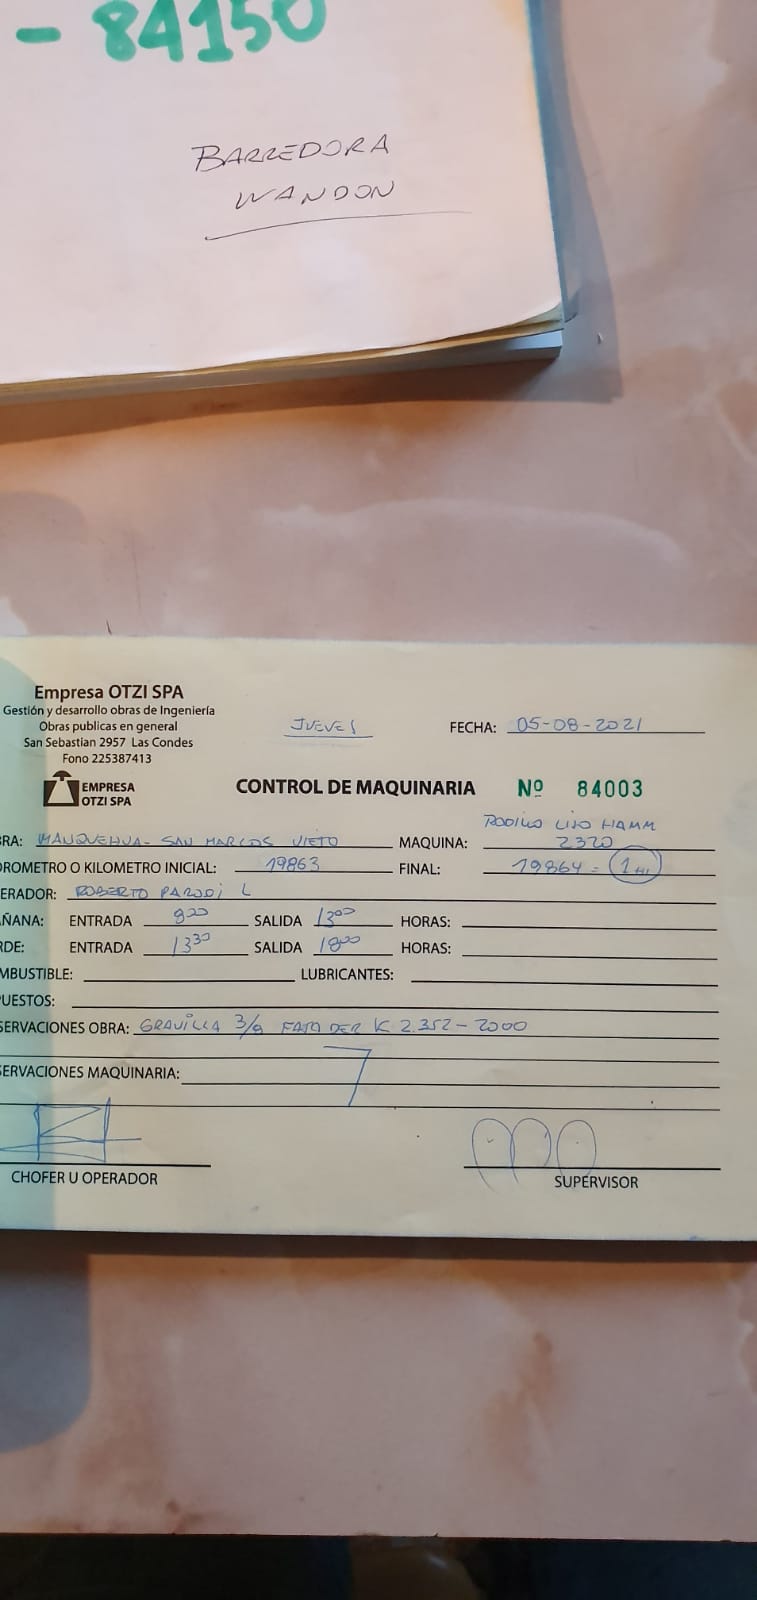 - 84150
BARREDORA
WANDON
Empresa OTZI SPA
Gestión y desarrollo obras de Ingeniería
Obras publicas en general
San Sebastian 2957 Las Condes
Fono 225387413
JUEVES
FECHA: 05-08-2021
EMPRESA
OTZI SPA
CONTROL DE MAQUINARIA Nº 84003
RODILLO LISO HAMM
BRA: MANQUEHUA - SAN MARCOS VIETO MAQUINA: 2320
OROMETRO O KILOMETRO INICIAL: 19863 FINAL: 19864 = 1
ERADOR: ROBERTO PARODI L
AÑANA: ENTRADA 8:00 SALIDA 13:00 HORAS:
RDE: ENTRADA 13:30 SALIDA 18:00 HORAS:
MBUSTIBLE: LUBRICANTES:
PUESTOS:
SERVACIONES OBRA: GRAVILLA 3/8 DER K 2.352 - 2000
SERVACIONES MAQUINARIA:
CHOFER U OPERADOR
SUPERVISOR